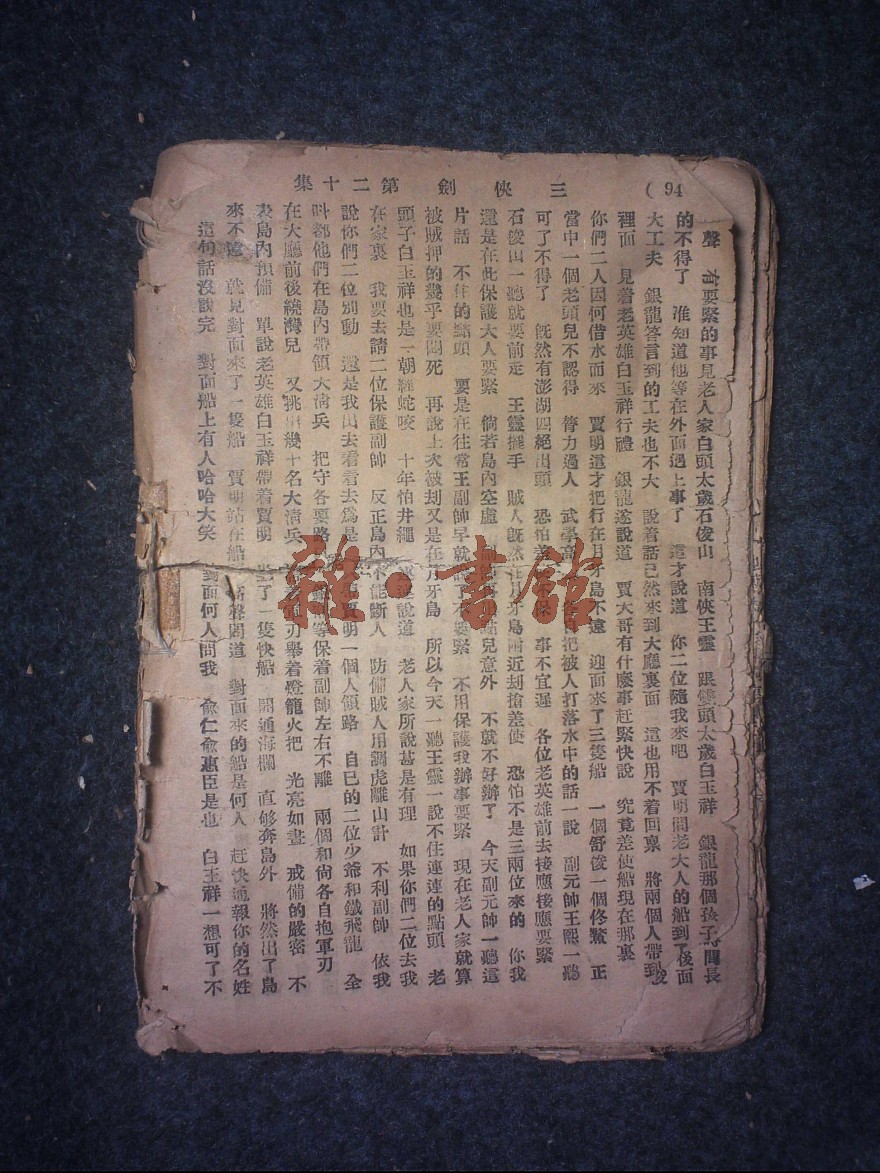 ( 94
三俠劍 第二十集
聲 有要緊的事見老人家白頭太歲石俊山 南俠王靈 跟雙頭太歲白玉祥 銀龍那個孩子 間長
的不得了 准知道他等在外面遇上事了 這才說道 你二位隨我來吧 賈明問老大人的船到了後面
大工夫 銀龍答言到的工夫也不大 說着話已然來到大廳裏面 這也用不着回禀 將兩個人帶到
裡面 見着老英雄白玉祥行禮 銀龍遂說道 賈大哥有什麼事赶緊快說 究竟差使船現在那裏
你們二人因何借水而來 賈明這才把行在月牙島不遠 迎面來了三隻船 一個舒俊一個佟鰲 正
當中一個老頭兒不認得 膂力過人 武學高 把被人打落水中的話一說 副元帥王熙一聽
可了不得了 旣然有澎湖四絕出頭 恐怕差 不保 事不宜遲 各位老英雄前去接應接應要緊
石俊山一聽就要前走 王靈擺手 賊人旣然在月牙島附近刦搶差使 恐怕不是三兩位來的 你我
還是在此保護大人要緊 倘若島內空虛 點兒意外 不就不好辦了 今天副元帥一聽這
片話 不住的點頭 要是在往常王副帥早就說了不要緊 不用保護我辦事要緊 現在老人家就算
被賊押的幾乎要悶死 再說上次被刦又是在月牙島 所以今天一聽王靈一說不住連連的點頭 老
頭子白玉祥也是一朝經蛇咬 十年怕井繩 說道 老人家所說甚是有理 如果你們二位去我
在家裏 我要去請二位保護副帥 反正島內不能斷人 防備賊人用調虎離山計 不利副帥 依我
說你們二位別動 還是我出去看看去爲是 賈明一個人領路 自已的二位少爺和鐵飛龍 全
呌都他們在島內帶領大淸兵 把守各要路 等保着副帥左右不離 兩個和尙各自抱軍刃
在大廳前後繞灣兒 又挑出幾十名大淸兵 刃舉着燈籠火把 光亮如晝 戒備的嚴密 不
表島內預備 單說老英雄白玉祥帶着賈明 坐了一隻快船 開通海欄 直够奔島外 將然出了島
來不遠 就見對面來了一隻船 賈明站在船 聲問道 對面來的船是何人 赶快通報你的名姓
這句話沒說完 對面船上有人哈哈大笑 對面何人問我 兪仁兪惠臣是也 白玉祥一想可了不
雜·書館